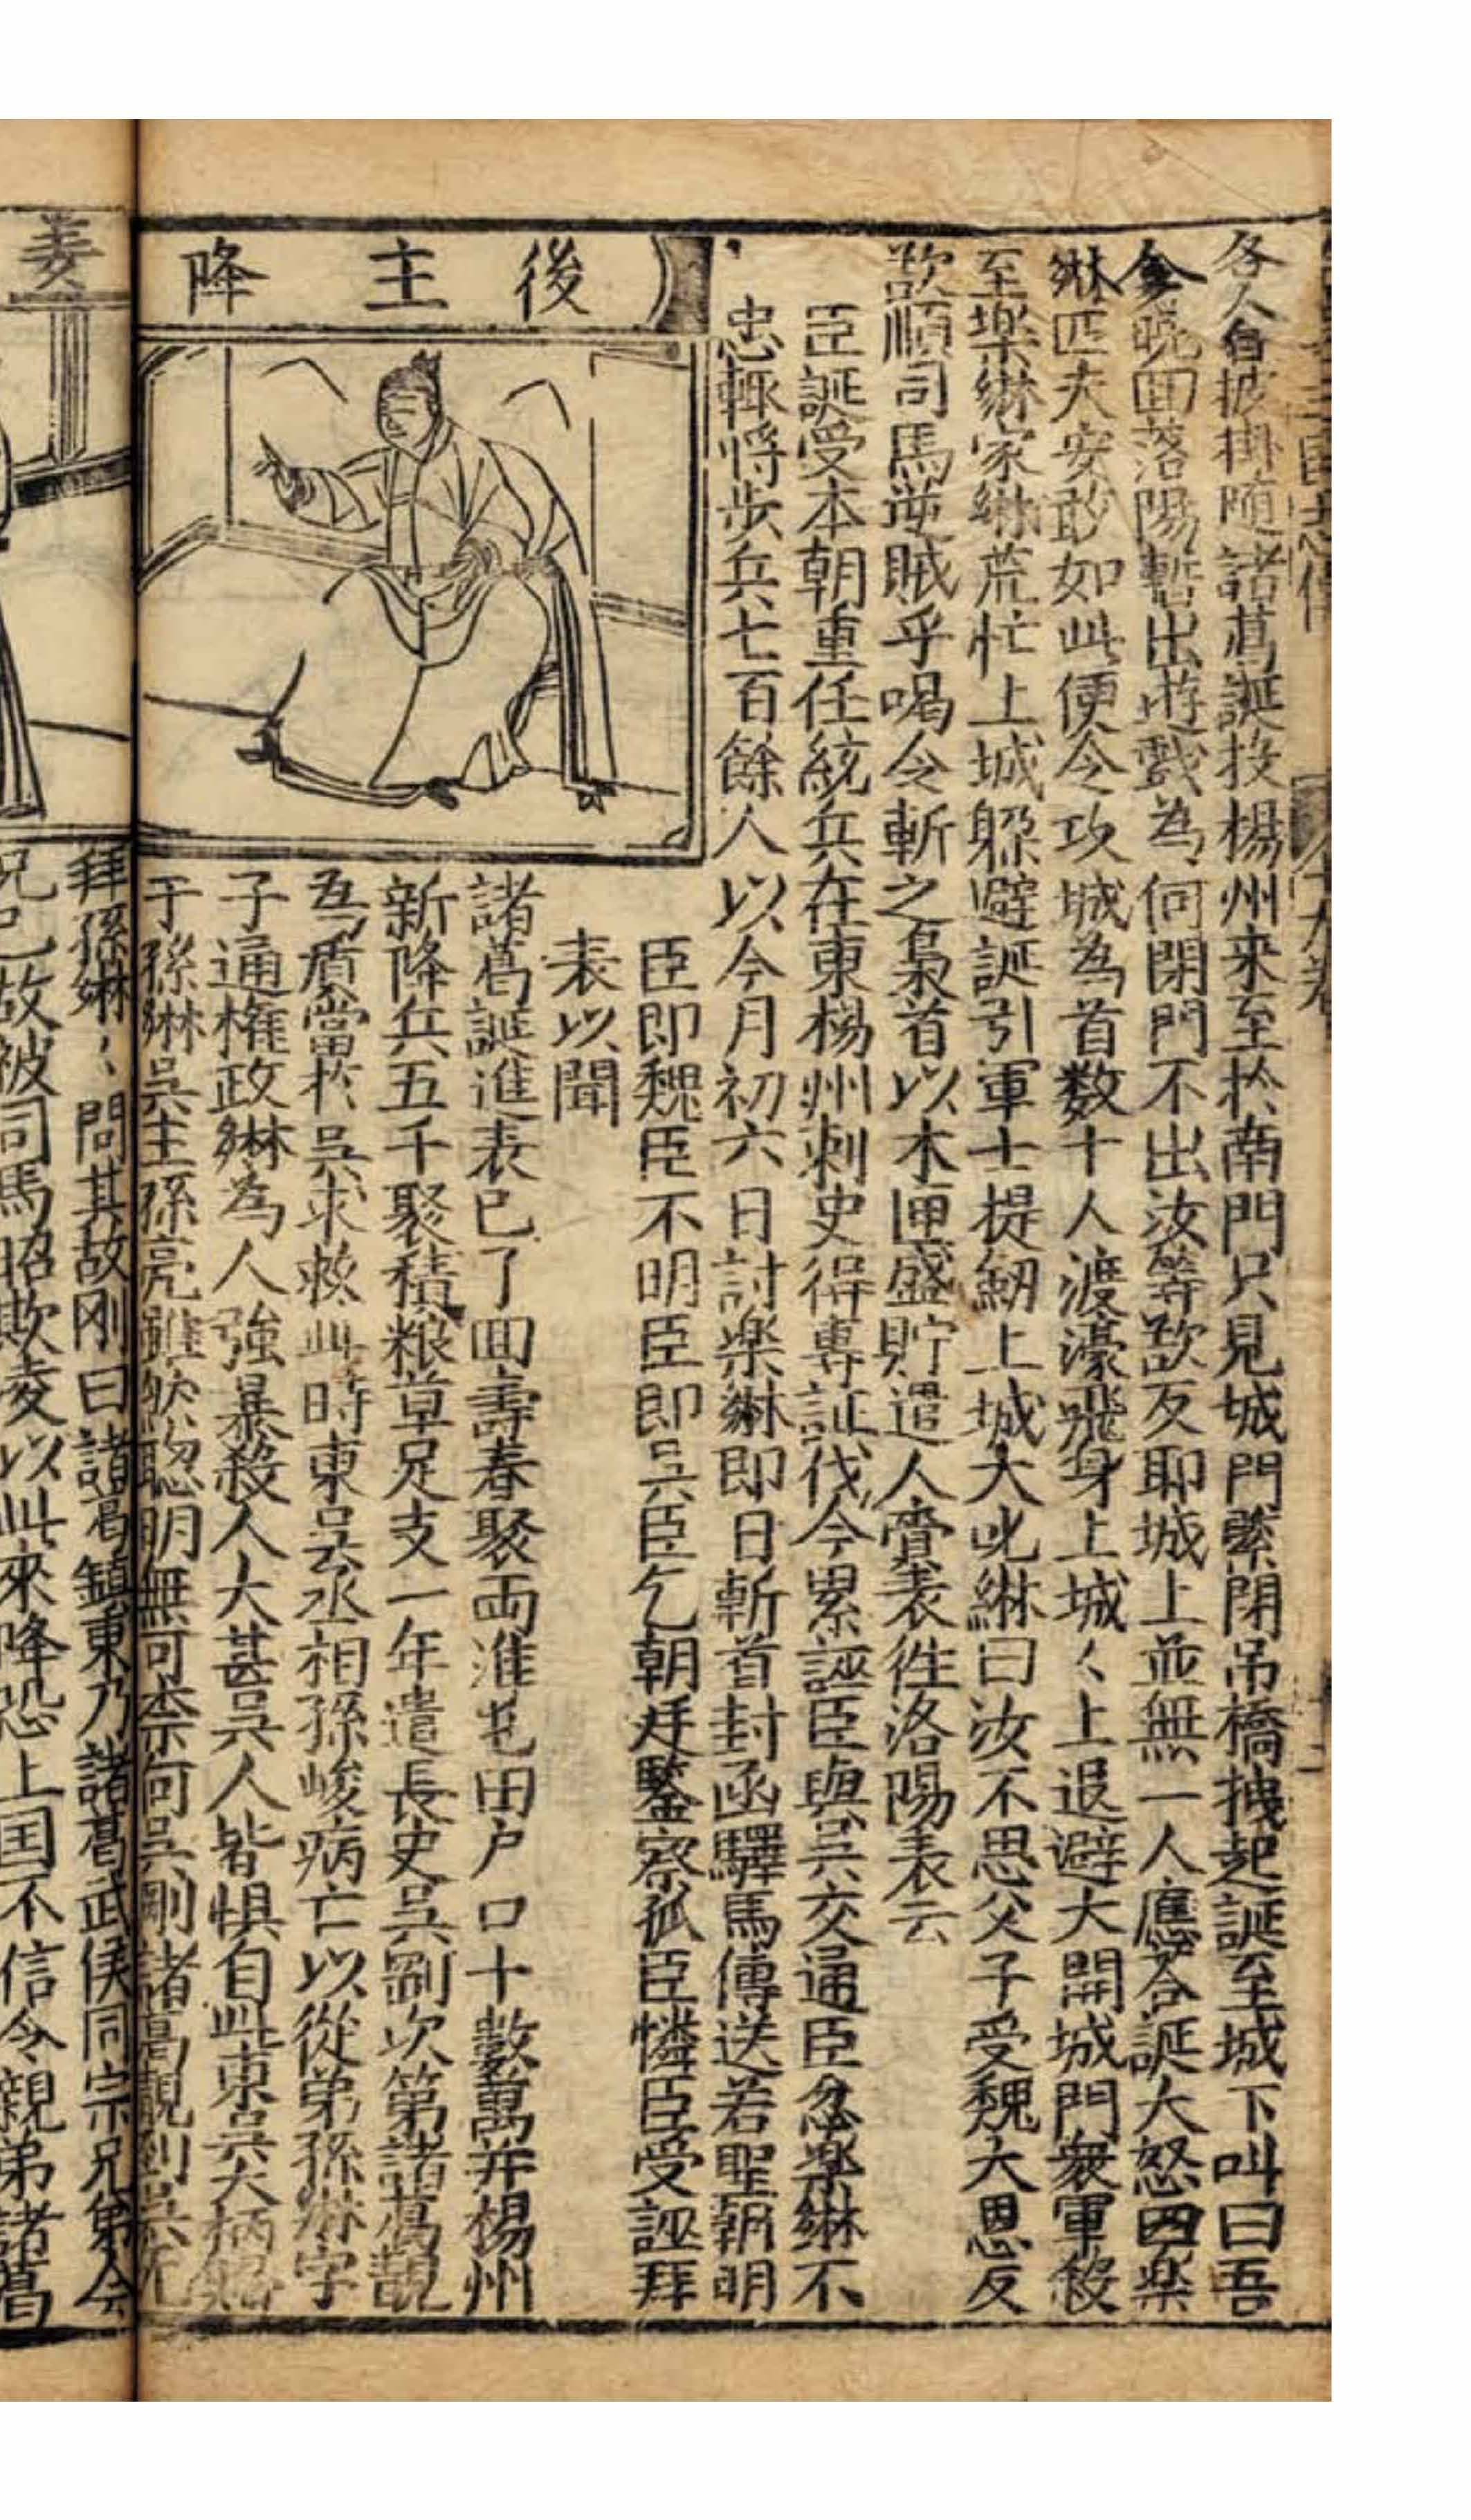 各人自披掛随諸葛誕投楊州來至於南門只見城門緊閉吊橋拽起誕至城下叫曰吾
今晚囬落陽暫出遊戱為何閉門不出汝等欲反耶城上並無一人應答誕大怒曰楽
綝匹夫安敢如此便令攻城為首数十人渡濠飛身上城〻上退避大開城門衆軍殺
至楽綝家綝荒忙上城躱避誕引軍士提劒上城大叱綝曰汝不思父子受魏大恩反
欲順司馬逆賊乎喝令斬之梟首以木匣盛貯遣人賫表徃洛陽表云
臣誕受本朝重任統兵在東楊州刺史得專証伐今累誣臣與吳交通臣忿楽綝不
忠輒将步兵七百餘人以今月初六日討楽綝即日斬首封函驛馬傳送若聖朝明
臣即魏臣不明臣即吳臣乞朝廷鑒察孤臣憐臣受誣拜
表以聞
後主降
諸葛誕進表已了囬壽春聚両淮屯田户口十數萬并楊州
新降兵五千聚積粮草足支一年遣長史吳劉次第諸葛靚
為質當於吳求救此時東吳丞相孫峻病亡以從弟孫綝字
子通權政綝為人強暴殺人大甚吳人皆惧自此東吳大柄
于孫綝吳主孫亮雖然聦明無可柰何吳剛諸葛靚到吳先
姜
拜孫綝〻問其故刚曰諸葛鎮東乃諸葛武侯同宗兄弟今
兄已故被司馬昭欺凌以此來降恐上国不信令親弟諸葛